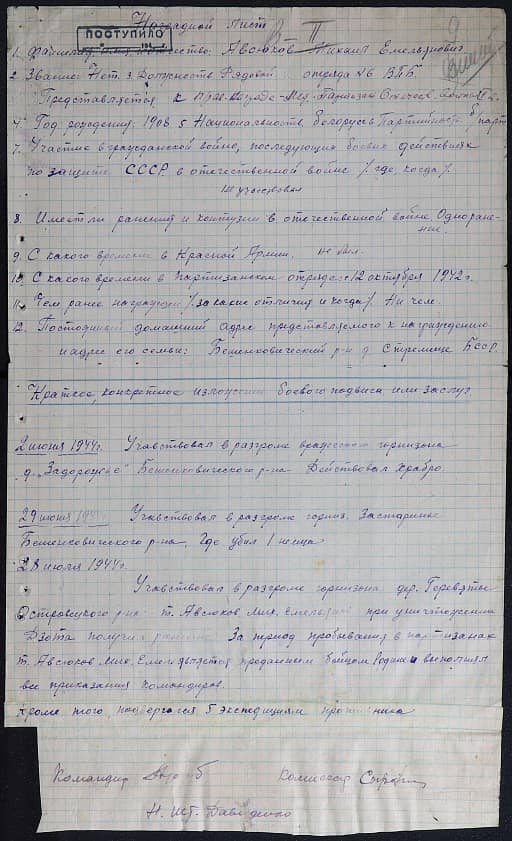 Наградной Лист II
ПОСТУПИЛО
1. Фамилия, имя, отчество: Авсюков Михаил Емельянович
2. Звание: Нет. 3. Должность Рядовой отряда №6 ВПБ.
Представляется к прав. награде - Мед. "Партизан Отечеств. войны" 2
4. Год рождения: 1908 5 Национальность белорусс Партийность б/парт
7. Участие в гражданской войне, последующих боевых действиях
по защите СССР в отечественной войне /где, когда/.
Не участвовал
8. Имеет ли ранения и контузии в отечественной войне Одно ране-
ние.
9. С какого времени в Красной Армии. не был.
10. С какого времени в партизанском отряде: с 12 октября 1942 г.
11. Чем ранее награжден /за какие отличия и когда/. Ни чем.
12. Постоянный домашний адрес представляемого к награждению
и адрес его семьи: Бешенковический р-н д. Стрелище БССР.
Краткое, конкретное изложение боевого подвига или заслуг
2 июня 1944 г. Учавствовал в разгроме вражеского гарнизона
д. "Задорожье" Бешенковического р-на Действовал храбро.
29 июня Учавствовал в разгроме гарниз.
Бешенковического р-на, Где убил 1 немца
28 июля 1944 г.
Учавствовал в разгроме гарнизона дер.
р-на. т. Авсюков Мих. при уничтожении
Дзота получил ранение. За период пребывания в партизанах
т. Авсюков Мих. Емел является преданным бойцом Родины выполнял
все приказания Командиров.
Кроме того, подвергался 5 экспедициям противника
Командир Комиссар
Н. шт. Давиденко